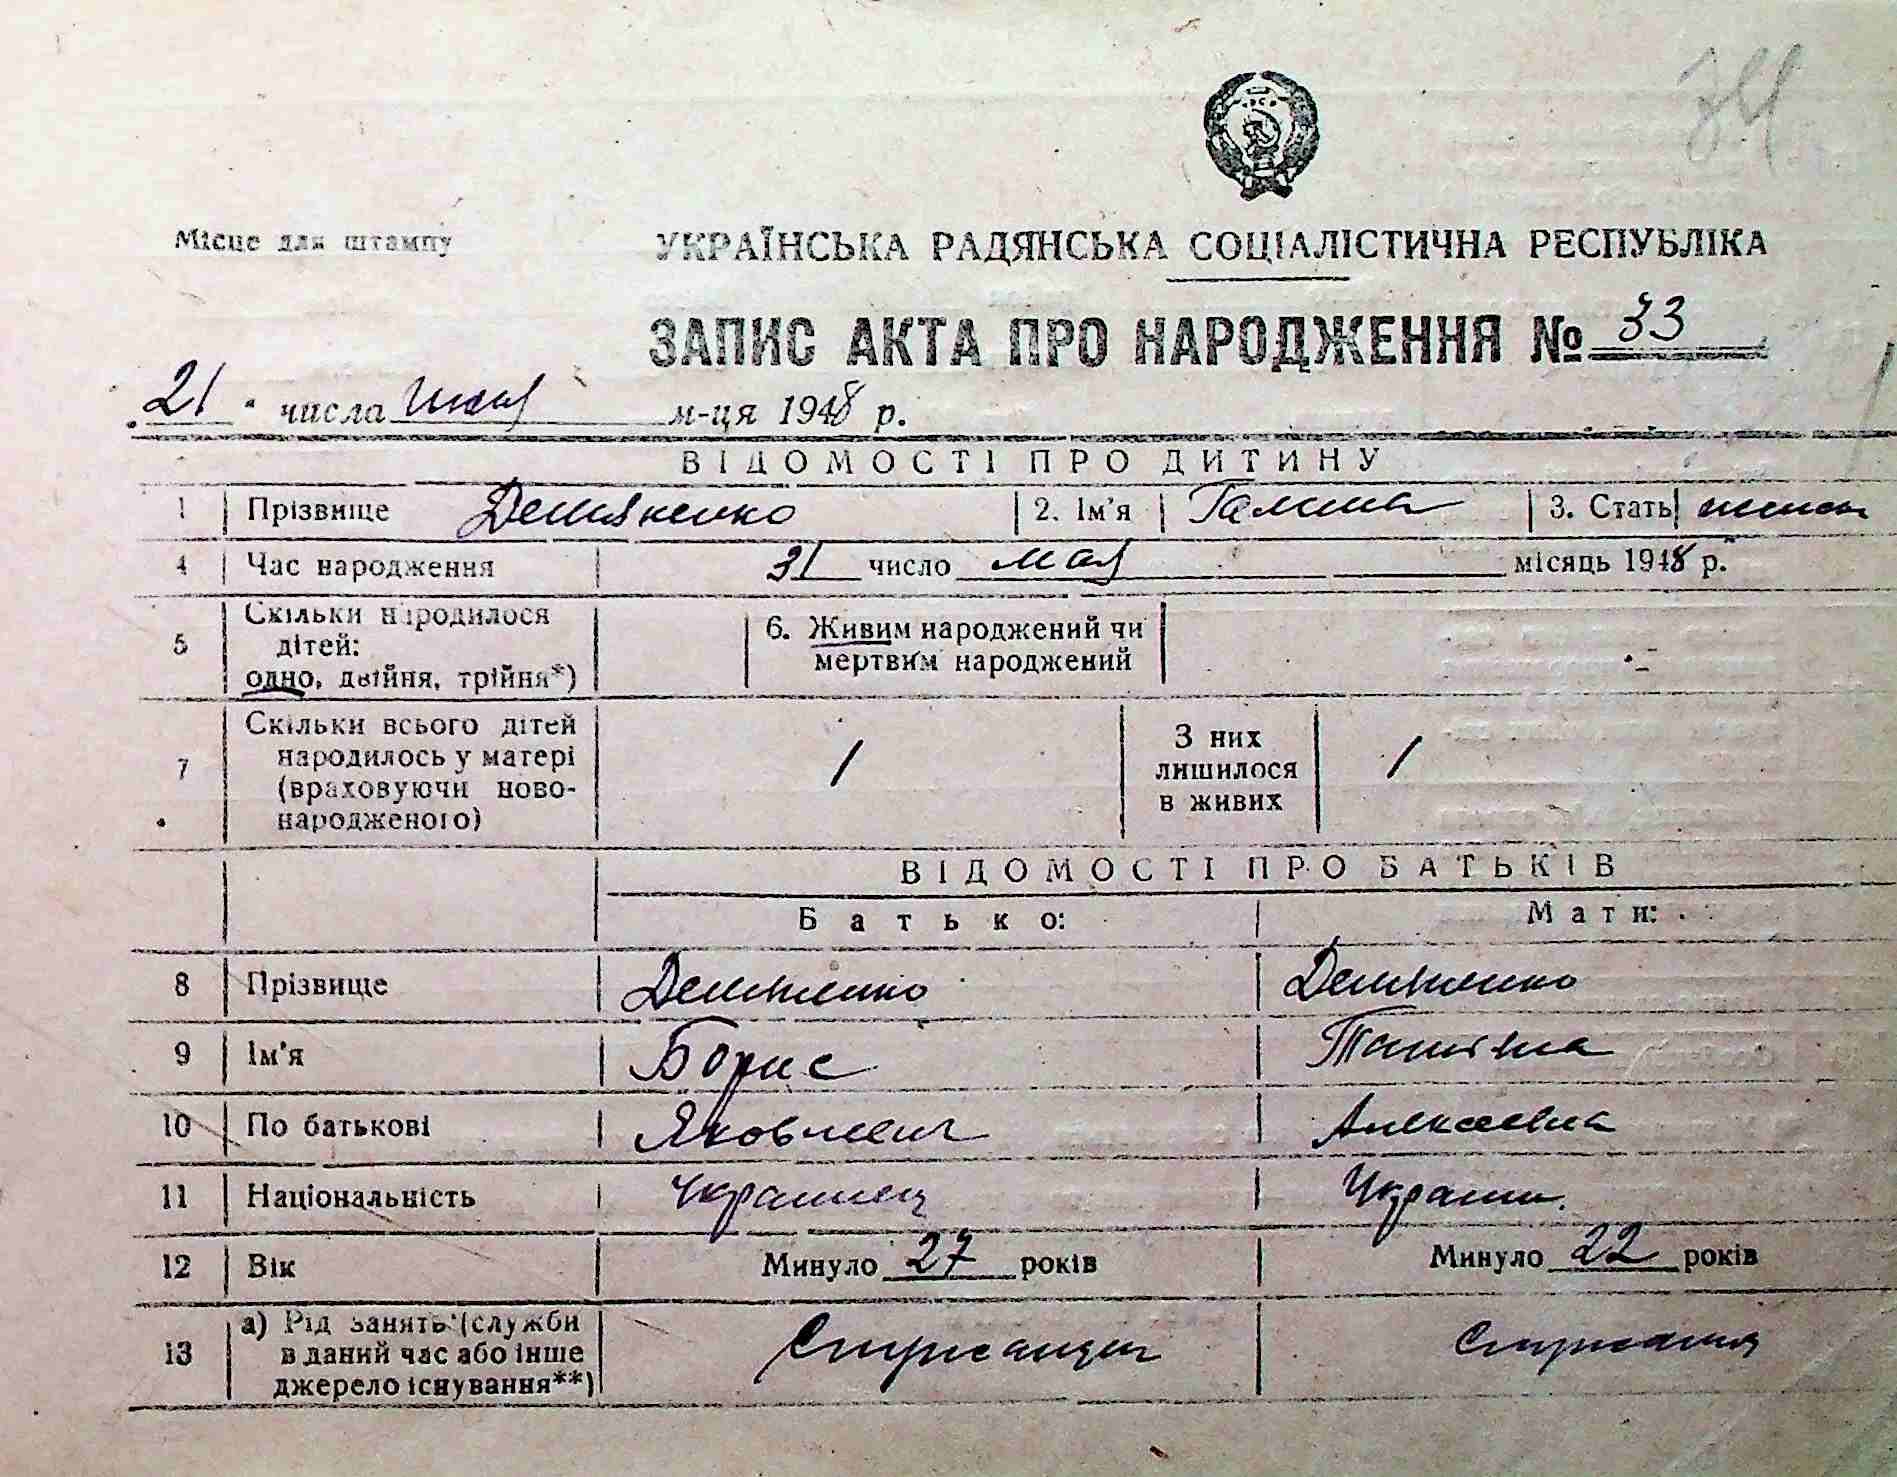 Місце для штампу
УКРАЇНСЬКА РАДЯНСЬКА СОЦІАЛІСТИЧНА РЕСПУБЛІКА
ЗАПИС АКТА ПРО НАРОДЖЕННЯ № 33
21 числа июня м-ця 1948 р.
ВІДОМОСТІ ПРО ДИТИНУ
1 Прізвище Демяненко 2. Ім'я Галина 3. Стать женск
4 Час народження 31 число мая місяць 1948 р.
5 Скільки народилося дітей: одно, двійня, трійня*) 6. Живим народжений чи мертвим народжений
7 Скільки всього дітей народилось у матері (враховуючи ново-народженого) 1 З них лишилося в живих 1
ВІДОМОСТІ ПРО БАТЬКІВ
Батько: Мати:
8 Прізвище Демяненко Демяненко
9 Ім'я Борис Татьяна
10 По батькові Яковлевич Алексеевна
11 Національність Украинец Украин.
12 Вік Минуло 27 років Минуло 22 років
13 а) Рід занять (служби в даний час або інше джерело існування**) Служащий Служащая